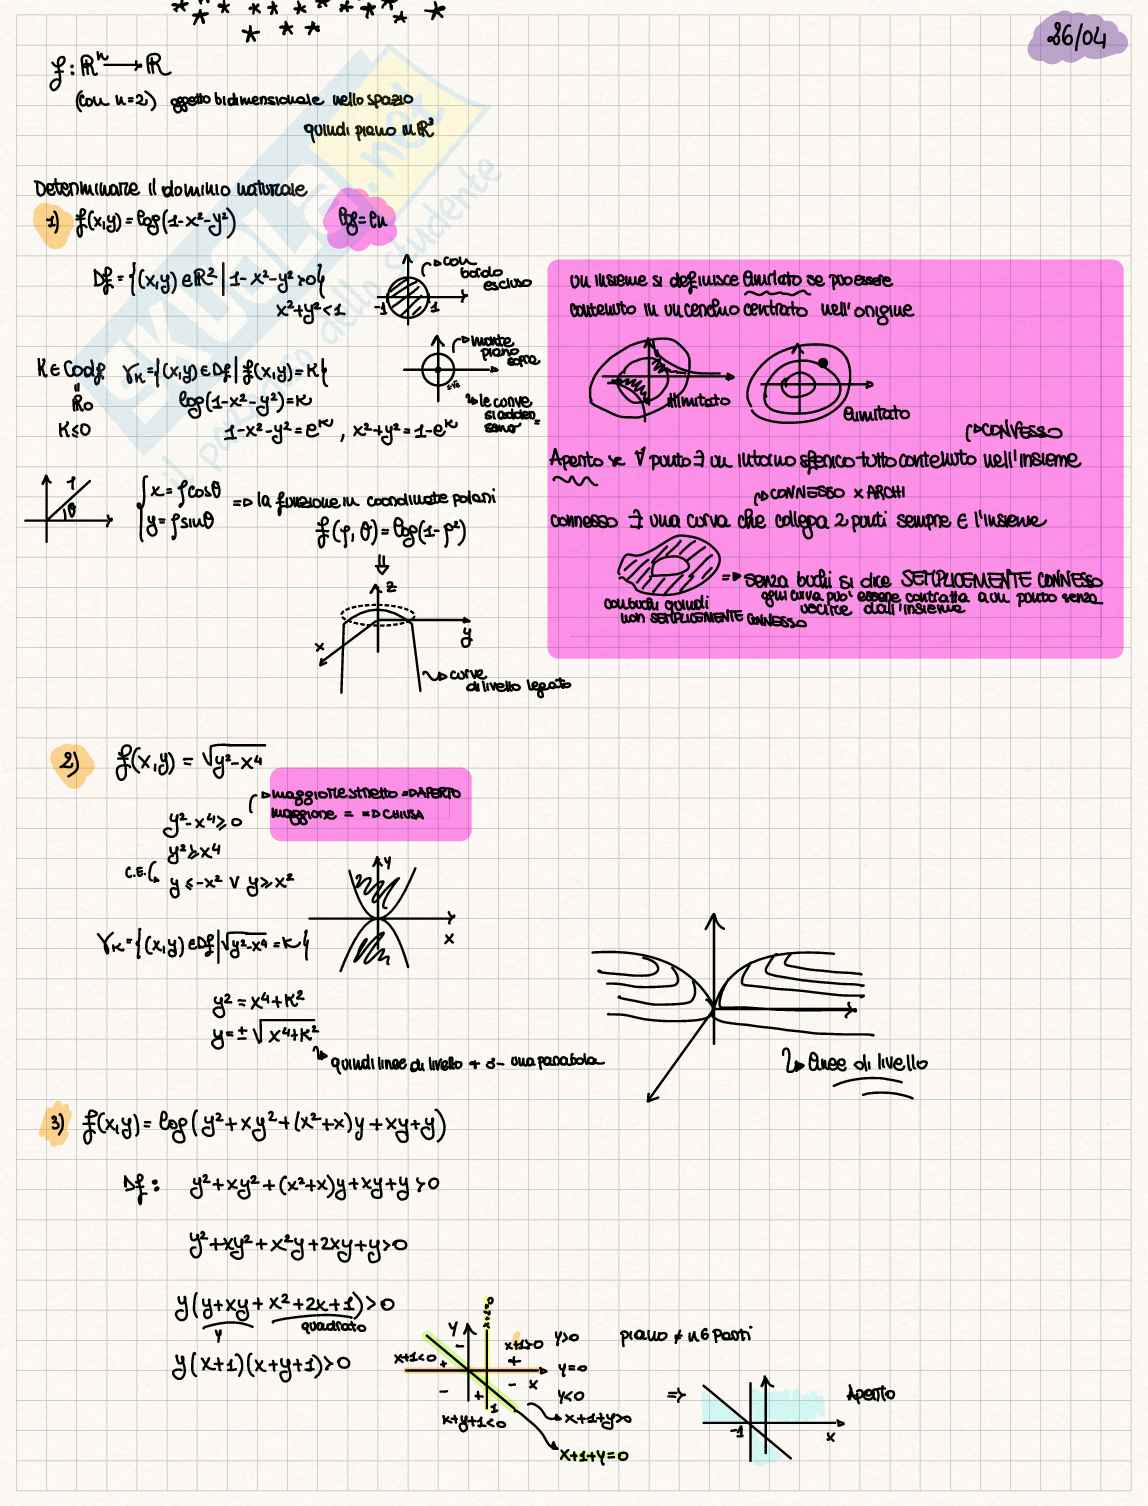 26/04
f: ℝⁿ → ℝ
(con n=2) oggetto bidimensionale nello spazio
quindi piano in ℝ³
Determinare il dominio naturale
1) f(x,y) = log(1-x²-y²) log = ln
Df = {(x,y) ∈ ℝ² | 1-x²-y²>0}
x²+y²<1
con bordo escluso
-1 1
K ∈ Codf γₖ = {(x,y) ∈ Df | f(x,y) = K}
ℝ₀
K≤0
log(1-x²-y²) = K
1-x²-y² = eᴷ , x²+y² = 1-eᴷ
le curve
1 θ
{ x = ρcosθ
y = ρsinθ
=> la funzione in coordinate polari
f(ρ, θ) = log(1-ρ²)
⇓
z
x y
curve
di livello legate
un insieme si definisce limitato se può essere
contenuto in un cerchio centrato nell'origine
illimitato
limitato
CONVESSO
Aperto se ∀ punto ∃ un intorno sferico tutto contenuto nell'insieme
CONNESSO x ARCHI
connesso ∃ una curva che collega 2 punti sempre ∈ l'insieme
=> senza buchi si dice SEMPLICEMENTE CONNESSO
ogni curva può essere contratta a un punto senza
uscire dall'insieme
con buchi quindi
non SEMPLICEMENTE CONNESSO
2) f(x,y) = √y²-x⁴
maggiore stretto => APERTO
maggiore = => CHIUSA
y²-x⁴≥0
y²≥x⁴
C.E. y ≤ -x² ∨ y ≥ x²
y
x
γₖ = {(x,y) ∈ Df | √y²-x⁴ = K}
y² = x⁴+K²
y = ± √x⁴+K²
quindi linee di livello + o - una parabola
linee di livello
3) f(x,y) = log(y²+xy²+(x²+x)y+xy+y)
Df: y²+xy²+(x²+x)y+xy+y>0
y²+xy²+x²y+2xy+y>0
y(y+xy+x²+2x+1)>0
y quadrato
y(x+1)(x+y+1)>0
y
x+1<0 x+1>0
+ - + - + -
x
1
x+y+1<0
y>0
y=0
y<0
x+1+y>0
x+1+y=0
piano ≠ in 6 parti
=>
-1
x
Aperto